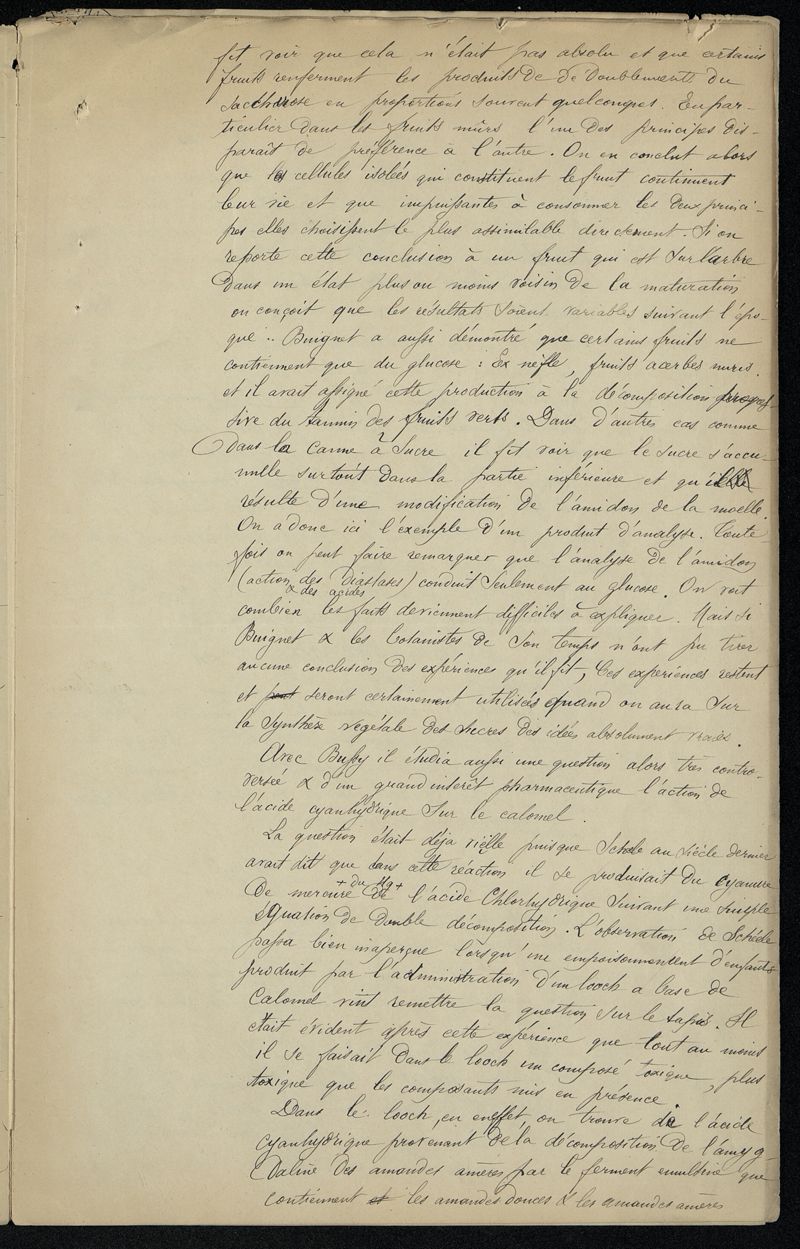 fit voir que cela n'était pas absolu et que certains
fruits renferment les produits de dedoublements du
Saccharose en proportions souvent quelconques. En par-
ticulier dans les fruits mûrs l'un des principes dis-
paraît de préférence à l'autre. On en conclut alors
que les cellules isolées qui constituent le fruit continuent
leur vie et que impuissantes à consommer les deux princi-
pes elles choisissent le plus assimilable directement. Si on
reporte cette conclusion à un fruit qui est sur l'arbre
dans un état plus ou moins voisin de la maturation
on conçoit que les résultats soient variables suivant l'épo-
que.. Buignet a aussi démontré que certains fruits ne
contiennent que du glucose : Ex nèfle, fruits acerbes murs.
et il avait assigné cette production à la décomposition progres-
sive du tannin des fruits verts. Dans d'autres cas comme
dans la canne à Sucre il fit voir que le sucre s'accu-
mulle surtout dans la partie inférieure et qu'il
résulte d'une modification de l'amidon de la moelle.
On a donc ici l'exemple d'un produit d'analyse. Toute-
fois on peut faire remarquer que l'analyse de l'amidon
(action des diastases) conduit seulement au glucose. On voit
& des acides
combien les faits deviennent difficiles à expliquer. Mais si
Buignet & les botanistes de son temps n'ont pu tirer
aucune conclusion des expériences qu'il fit, ces expériences restent
et peut seront certainement utilisées quand on aura sur
la Synthèse végétale des sucres des idées absolument vraies.
Avec Bussy il étudia aussi une question alors très contro-
versée & d'un grand interêt pharmaceutique l'action de
l'acide cyanhydrique sur le calomel.
La question était déja vieille puisque Schele au siècle dernier
avait dit que dans cette réaction il se produisait du cyanure
+ du Hg +
de mercure de l'acide Chlorhydrique suivant une simple
équation de double décomposition. L'observation de Schéele
passa bien inaperçue lorsqu'une empoisonnement d'enfants
produit par l'administration d'un looch a base de
Calomel vint remettre la question sur le tapis. Il
était évident après cette expérience que tout au moins
il se faisait dans le looch un composé toxique, plus
toxique que les composants mis en présence.
Dans le looch, en effet on trouve de l'acide
cyanhydrique provenant de la décomposition de l'amyg-
daline des amandes amères par le ferment emulsine que
contiennent et les amandes douces & les amandes amères